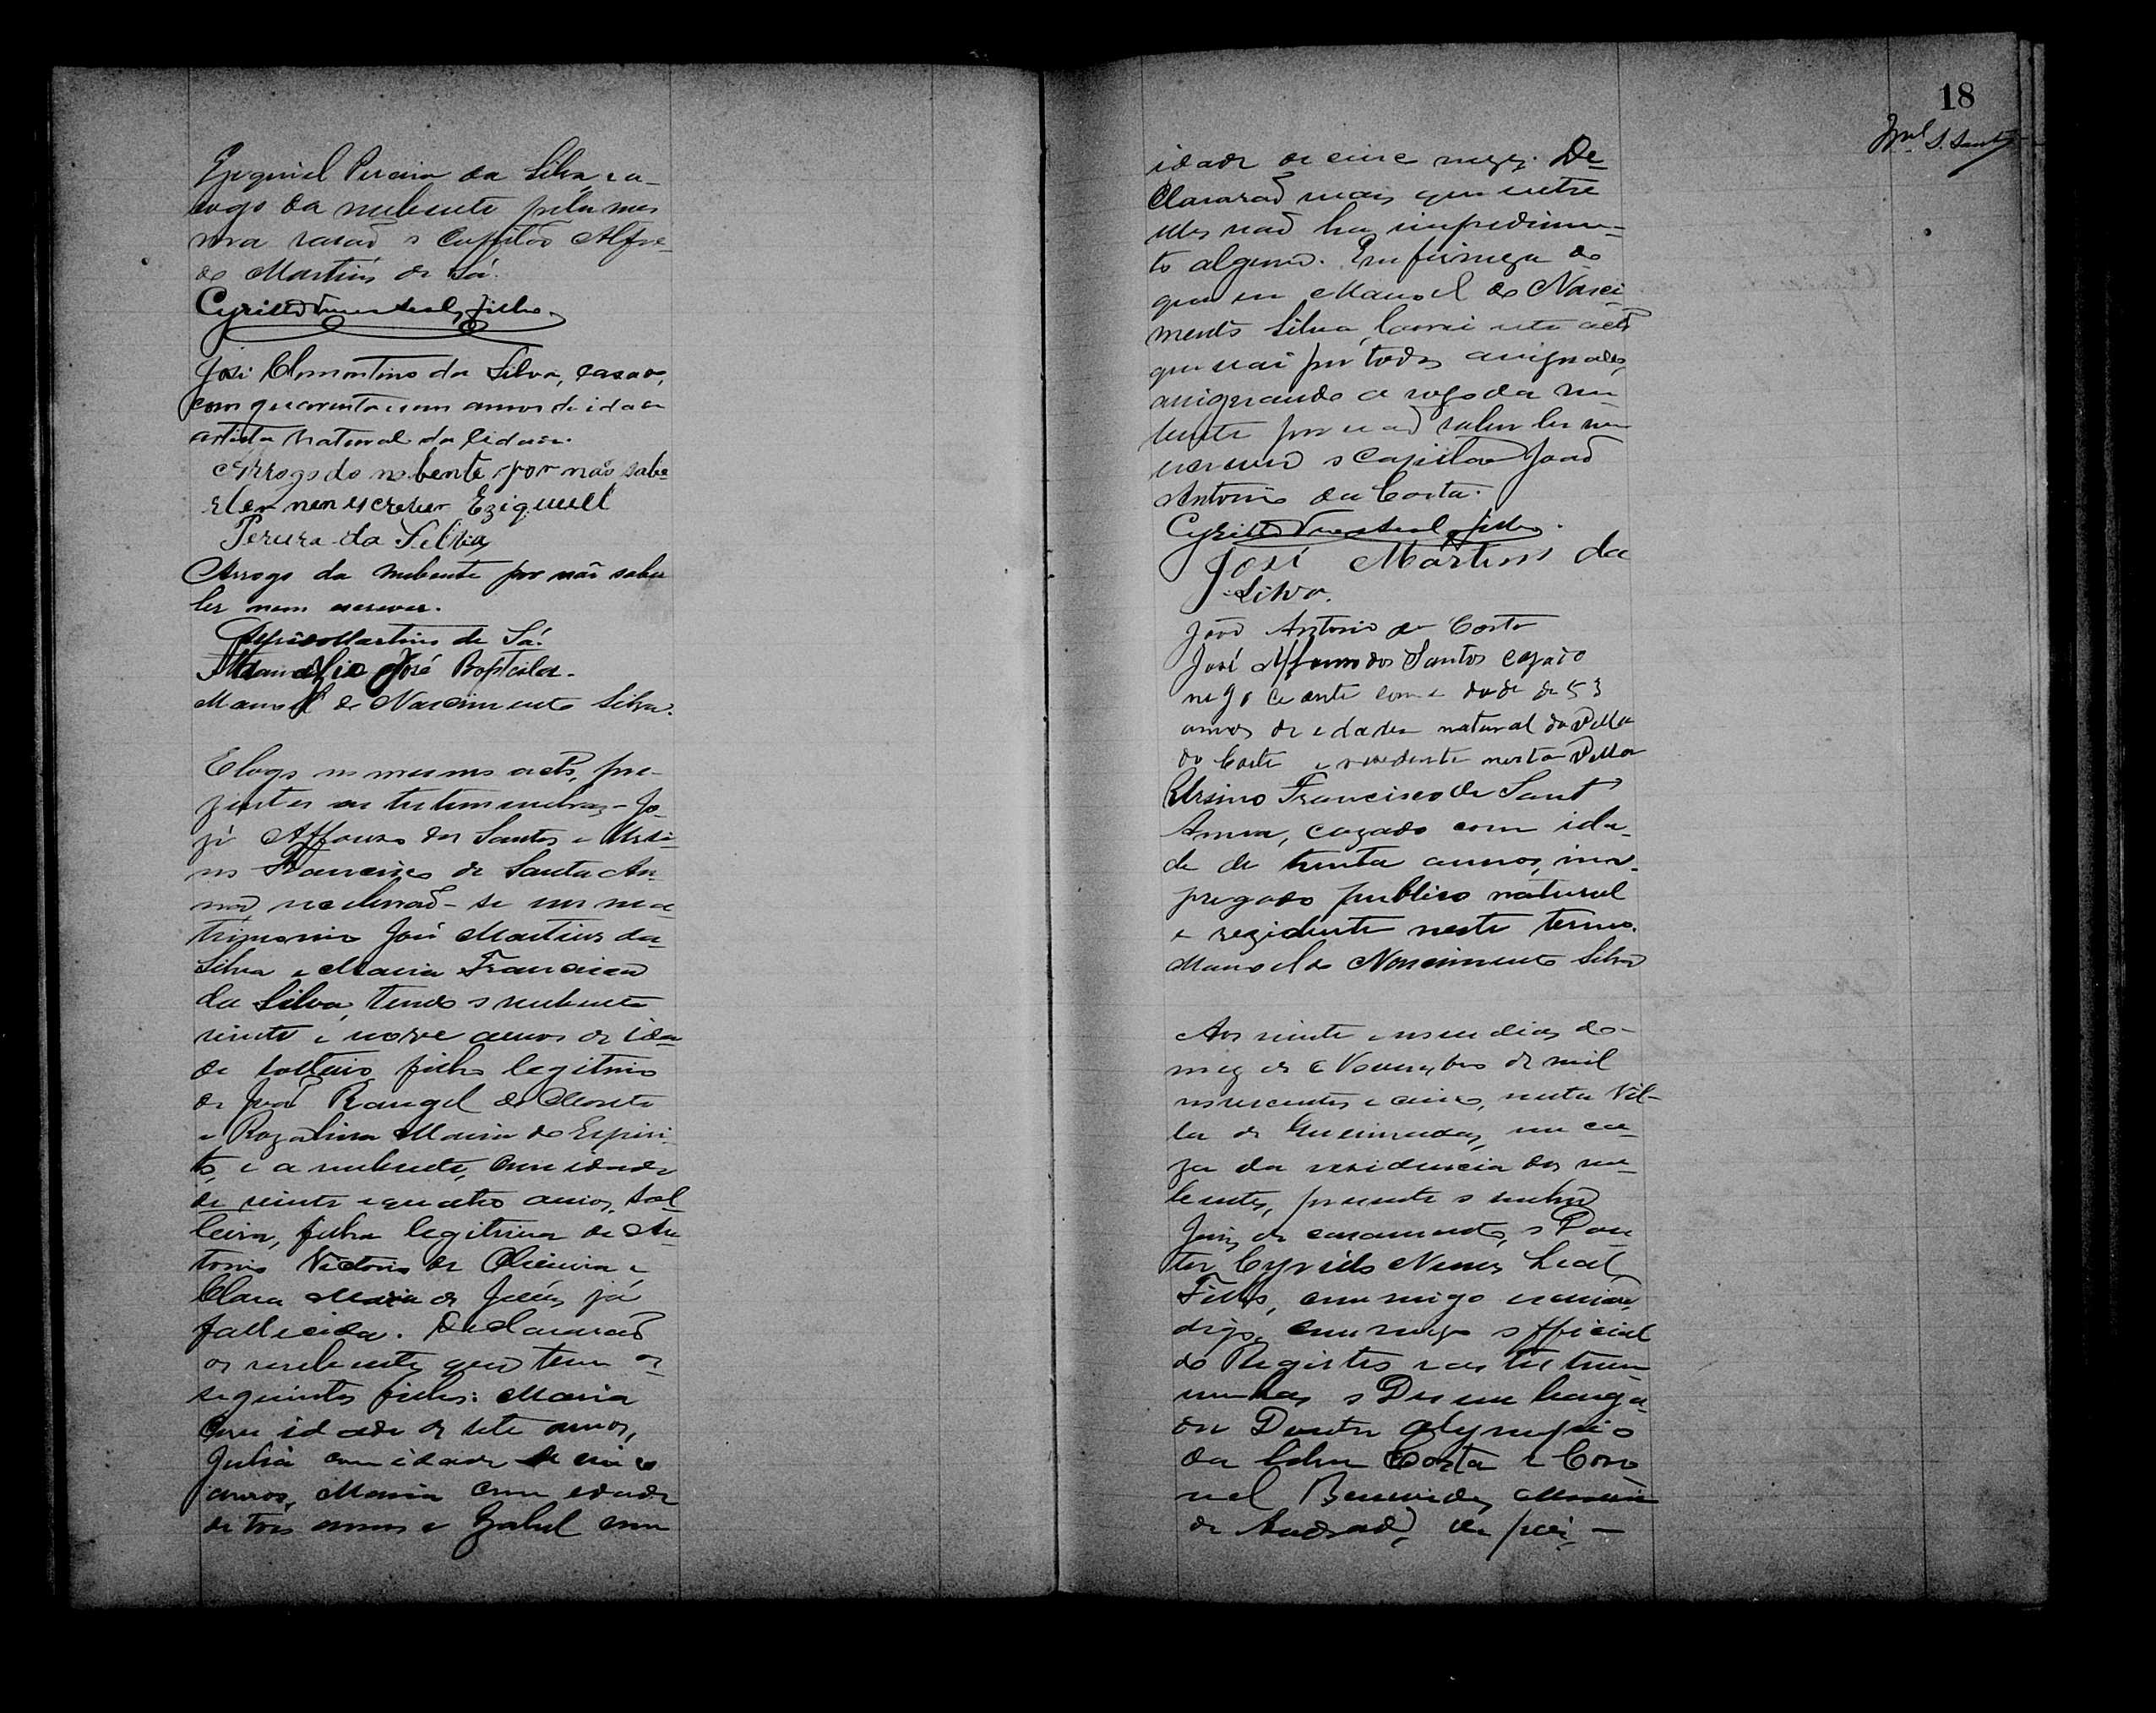 Ezequiel Pereira da Silva, e a
rogo da nubente pela mes
ma rasaõ o Capitão Alfre-
do Martins de Sá.
Cyrillo Nunes Leal, filho.
José Clementino da Silva, casado,
com quarenta e um annos de idade
artista natural da Cidade.
Arrogo do nobente por não sabe
r ler nem escrever Eziquiell
Pereira da Silvia
Arrogo da nubente por não saber
ler nem escrever.
Martins de Sá.
José Baptista.
Manoel do Nascimento Silva.
E logo no mesmo acto, pre-
zentes as testemunhas - Jo-
zé Affonso dos Santos e Ursi-
no Francisco de Santa An-
na receberaõ-se em ma-
trimonio José Martins da
Silva e Maria Francisca
da Silva, tendo o nubente
vinte e nove annos de ida
de solteiro filho legitimo
de Joaõ Rangel do
e Rozalina Maria do Espiri-
to, e a nubente, com idade
de vinte e quatro annos, sol
leira, filha legitima de An
tonio Victorio de Oliveira e
Clara Maria de Jesús, já
fallecida. Declararaõ
os nubentes que tem os
seguintes filhos: Maria
com idade de sete annos,
Julia com idade de cinco
annos, Maria com edade
de tres annos e Izabel com
18
idade de cinco mezes. De-
clararaõ mais que entre
elles naõ ha impedimen-
to algum. Em firmeza do
que eu Manoel do Nasci
mento Silva, lavrei este acto
que vai por todos assignado,
assignando a rogo da nu
bente por naõ saber ler nem
escrever o Capitão Joaõ
Antonio da Costa.
Cyrillo Nunes Leal, filho.
José Martins da
Silva.
João Antonio da Costa
José Affonso dos Santos cazado
negoceante com e dade de 53
annos de edade natural da Villa
do Conde e residente nesta Villa
Ursino Francisco de Sant'
Anna, cazado com ida-
de de trinta annos, im-
pregado publico natural
e rezidente neste termo.
Manoel do Nascimento Silva
Aos vinte e nove dias do
mez de Novembro de mil
novecentos e cinco, nesta Vil-
la de Queimadas, em ca-
za da residencia dos nu-
bentes, presente o mesmo
Juiz de casamentos, o Dou
tor Cyrillo Nunes Leal
Filho, commigo escrivão
digo, commigo official
do Registro e as testem
unhas o Desembarga-
dor Doutor Olympio
da Silva Costa e Coro-
nel
de Andrade, depois